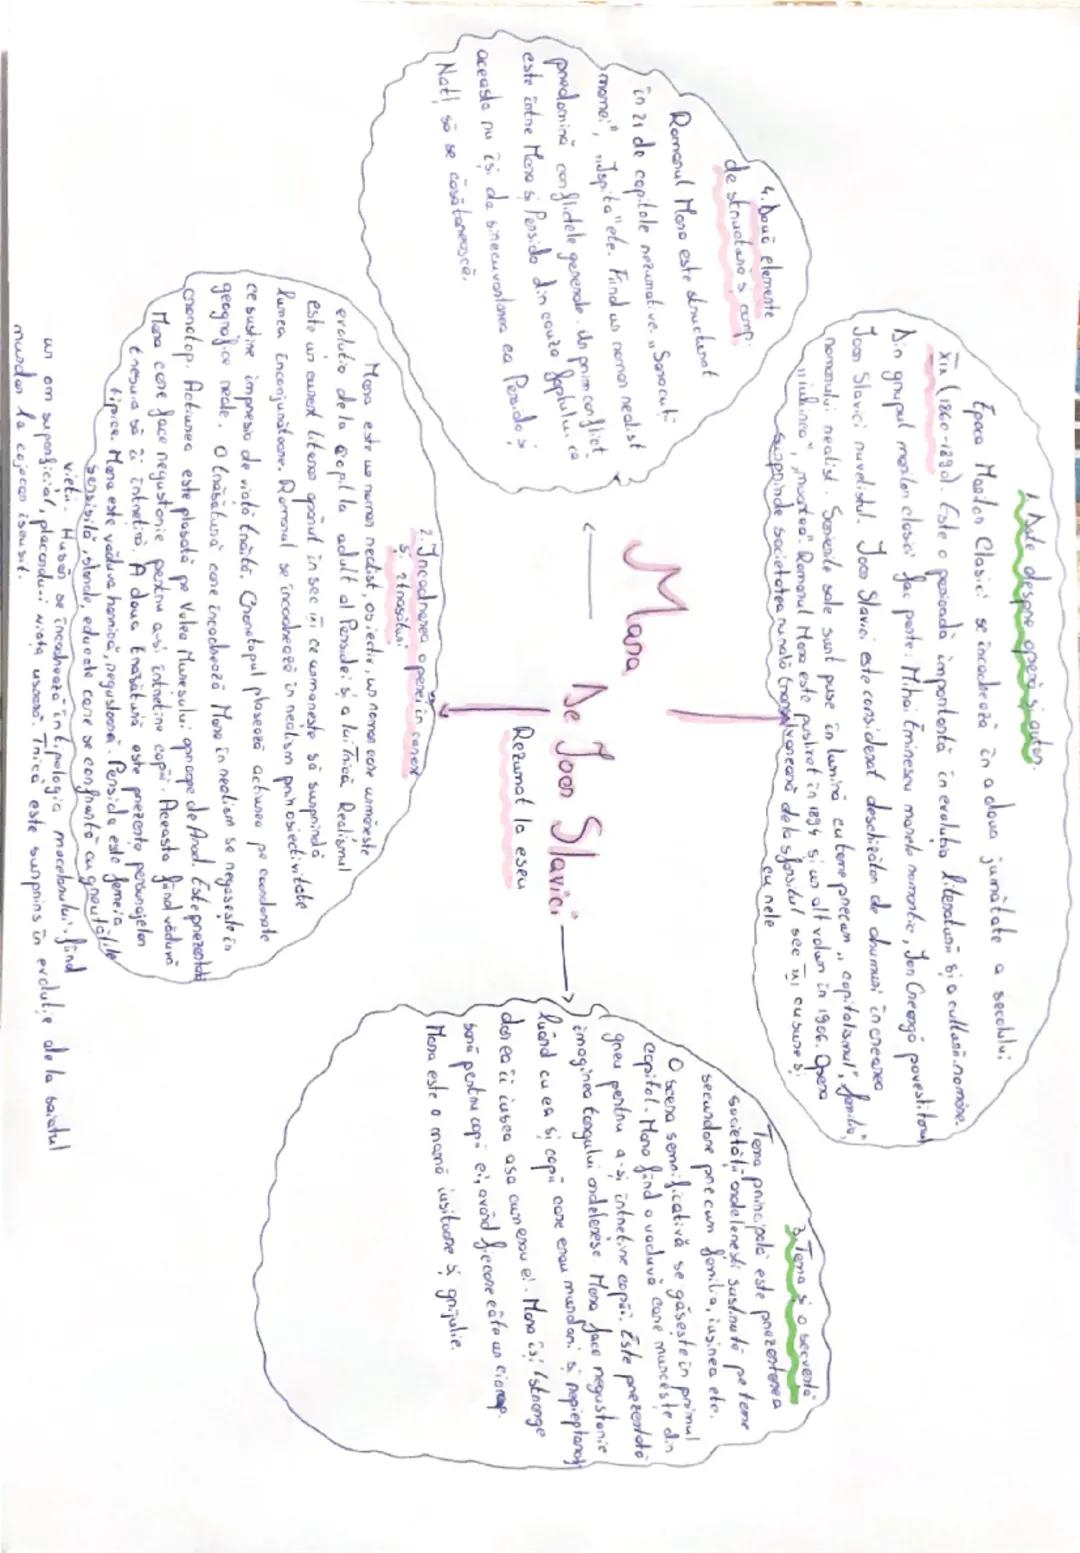 Mara
De Ioan Slavici
Rezumat la eseu
1. Date despre operă și autor.
Epoca Marilor Clasici se încadrează în a doua jumătate a secolului
XIX (1860-1890). Este o perioadă importantă în evoluția literaturii și a culturii române.
Din grupul marilor clasici fac parte: Mihai Eminescu marele romantic, Ion Creangă povestitorul
Ioan Slavici nuvelistul. Ioan Slavici este considerat deschizător de drumuri în crearea
romanului realist. Scrierile sale sunt puse în lumină cu teme precum "capitalismul", familia,
"iubirea", "moartea". Romanul Mara este publicat în 1894 și un alt volum în 1906. Opera
surprinde societatea rurală transilvăneană de la sfârșitul sec XIX cu bune și
cu rele
2. Încadrarea operei în curent
și 2 trăsături
Mara este un roman realist, obiectiv, un roman care urmărește
evoluția de la copil la adult al Persidei și a lui Trică. Realismul
este un curent literar apărut în sec XIX ce urmărește să surprindă
lumea înconjurătoare. Romanul se încadrează în realism prin obiectivitate
ce susține impresia de viață trăită. Cronotopul plasează acțiunea pe coordonate
geografice reale. O trăsătură care încadrează Mara în realism se regăsește în
cronotop. Acțiunea este plasată pe Valea Mureșului aproape de Arad. Este prezentată
Mara care face negustorie pentru a-și întreține copiii. Aceasta fiind văduvă
trebuia să îi întrețină. A doua trăsătură este prezența personajelor
tipice. Mara este văduva harnică, negustoare. Persida este femeia
sensibilă, blândă, educată care se confruntă cu greutățile
vieții. Hubăr se încadrează în tipologia măcelarului fiind
un om superficial, plăcându-i viața ușoară. Trică este surprins în evoluție de la băiatul
murdar la cojocar iscusit.
3. Tema și o secvență
Tema principală este prezentarea
societății ardelenești susținută pe teme
secundare precum familia, iubirea etc.
O scenă semnificativă se găsește în primul
capitol. Mara fiind o văduvă care muncește din
greu pentru a-și întreține copiii. Este prezentată
imaginea târgului ardelenesc. Mara face negustorie
luând cu ea și copiii care erau murdari și nepieptănați
dar ea îi iubea așa cum erau ei. Mara își strânge
bani pentru copiii ei, având fiecare câte un ciorap.
Mara este o mamă iubitoare și grijulie.
4. Două elemente
de structură și comp.
Romanul Mara este structurat
în 21 de capitole rezumative. "Sărăcuții
mamei", "Ispita" etc. Fiind un roman realist
predomină conflictele generale. Un prim conflict
este între Mara și Persida din cauza faptului că
aceasta nu își dă binecuvântarea ca Persida și
Națl să se căsătorească.